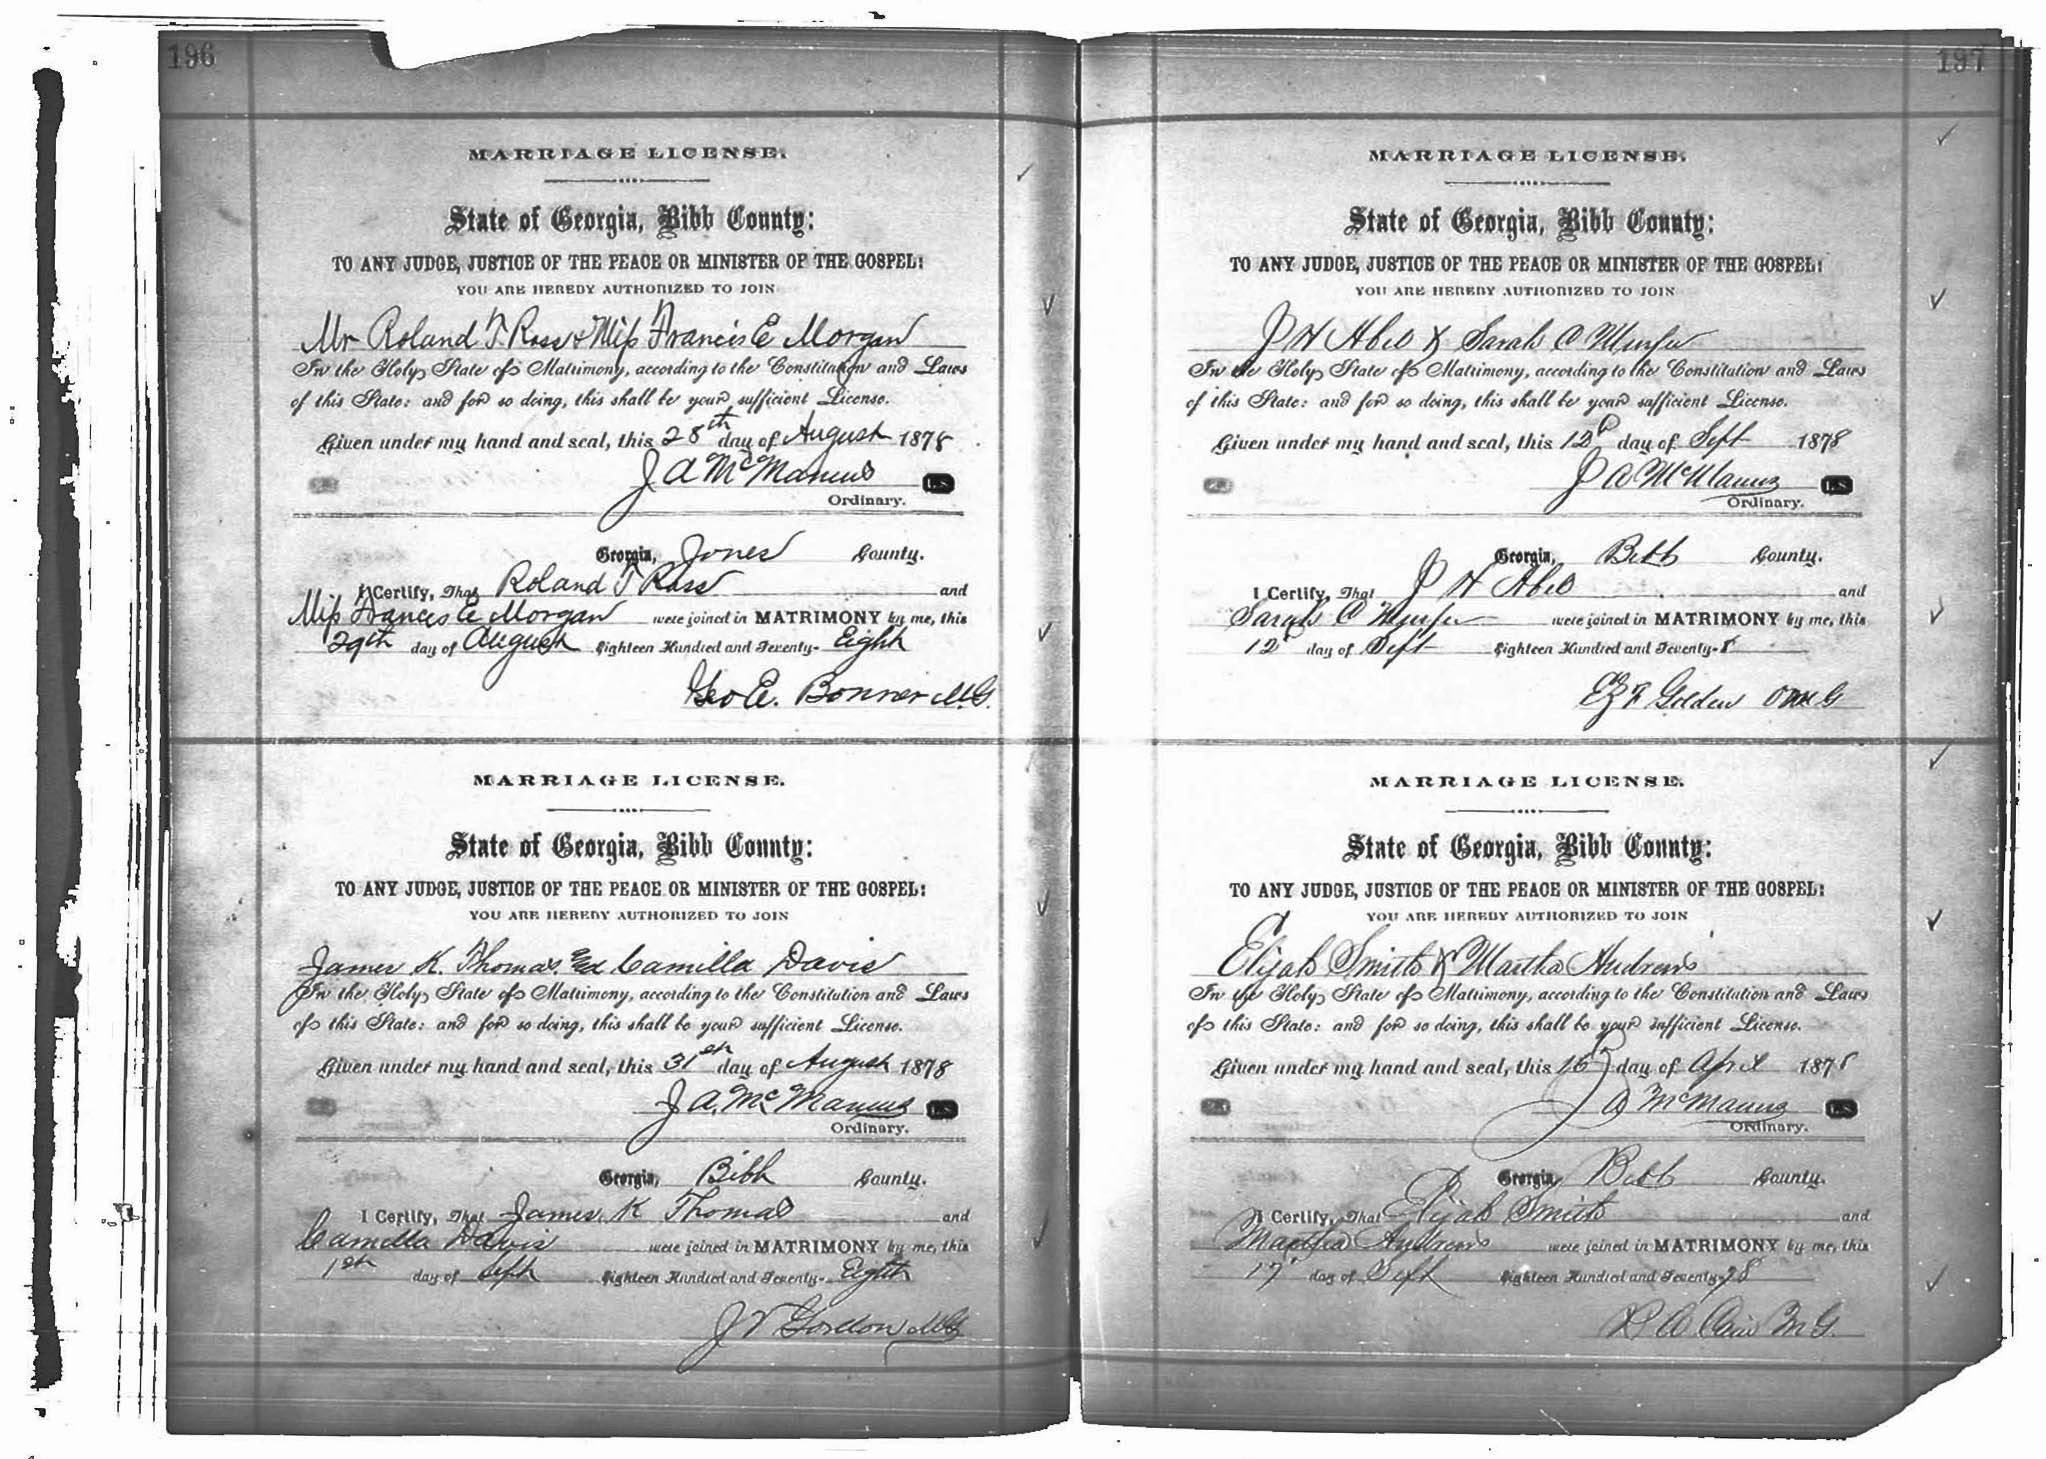 196
MARRIAGE LICENSE.
State of Georgia, Bibb County:
TO ANY JUDGE, JUSTICE OF THE PEACE OR MINISTER OF THE GOSPEL:
YOU ARE HEREBY AUTHORIZED TO JOIN
Mr Roland T Ross & Miss Francis E Morgan
In the Holy State of Matrimony, according to the Constitution and Laws
of this State: and for so doing, this shall be your sufficient License.
Given under my hand and seal, this 28th day of August 1878
J A McManus L.S.
Ordinary.
Georgia, Jones County.
I Certify, That Roland T Ross and
Miss Frances E Morgan were joined in MATRIMONY by me, this
29th day of August Eighteen Hundred and Seventy- Eight
Geo E. Bonner M.G.
MARRIAGE LICENSE.
State of Georgia, Bibb County:
TO ANY JUDGE, JUSTICE OF THE PEACE OR MINISTER OF THE GOSPEL:
YOU ARE HEREBY AUTHORIZED TO JOIN
James K. Thomas and Camilla Davis
In the Holy State of Matrimony, according to the Constitution and Laws
of this State: and for so doing, this shall be your sufficient License.
Given under my hand and seal, this 31st day of August 1878
J A. McManus L.S.
Ordinary.
Georgia, Bibb County.
I Certify, That James K Thomas and
Camilla Davis were joined in MATRIMONY by me, this
1st day of Sept Eighteen Hundred and Seventy- Eighth
J V Gordon MG
197
MARRIAGE LICENSE.
State of Georgia, Bibb County:
TO ANY JUDGE, JUSTICE OF THE PEACE OR MINISTER OF THE GOSPEL:
YOU ARE HEREBY AUTHORIZED TO JOIN
J H & Sarah C
In the Holy State of Matrimony, according to the Constitution and Laws
of this State: and for so doing, this shall be your sufficient License.
Given under my hand and seal, this 12th day of Sept 1878
J A McManus L.S.
Ordinary.
Georgia, Bibb County.
I Certify, That J H and
Sarah C were joined in MATRIMONY by me, this
12 day of Sept Eighteen Hundred and Seventy-8
Golden
MARRIAGE LICENSE.
State of Georgia, Bibb County:
TO ANY JUDGE, JUSTICE OF THE PEACE OR MINISTER OF THE GOSPEL:
YOU ARE HEREBY AUTHORIZED TO JOIN
Elijah Smith & Martha Andrews
In the Holy State of Matrimony, according to the Constitution and Laws
of this State: and for so doing, this shall be your sufficient License.
Given under my hand and seal, this 16th day of April 1878
J A McManus L.S.
Ordinary.
Georgia, Bibb County.
I Certify, That Elijah Smith and
Martha Andrews were joined in MATRIMONY by me, this
17 day of Sept Eighteen Hundred and Seventy-78
M G.